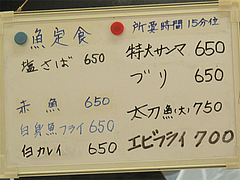 魚定食
塩さば 650
赤魚 650
白身魚フライ 650
白カレイ 650
所要時間15分位
特大サンマ 650
ブリ 650
太刀魚(大) 750
エビフライ 700